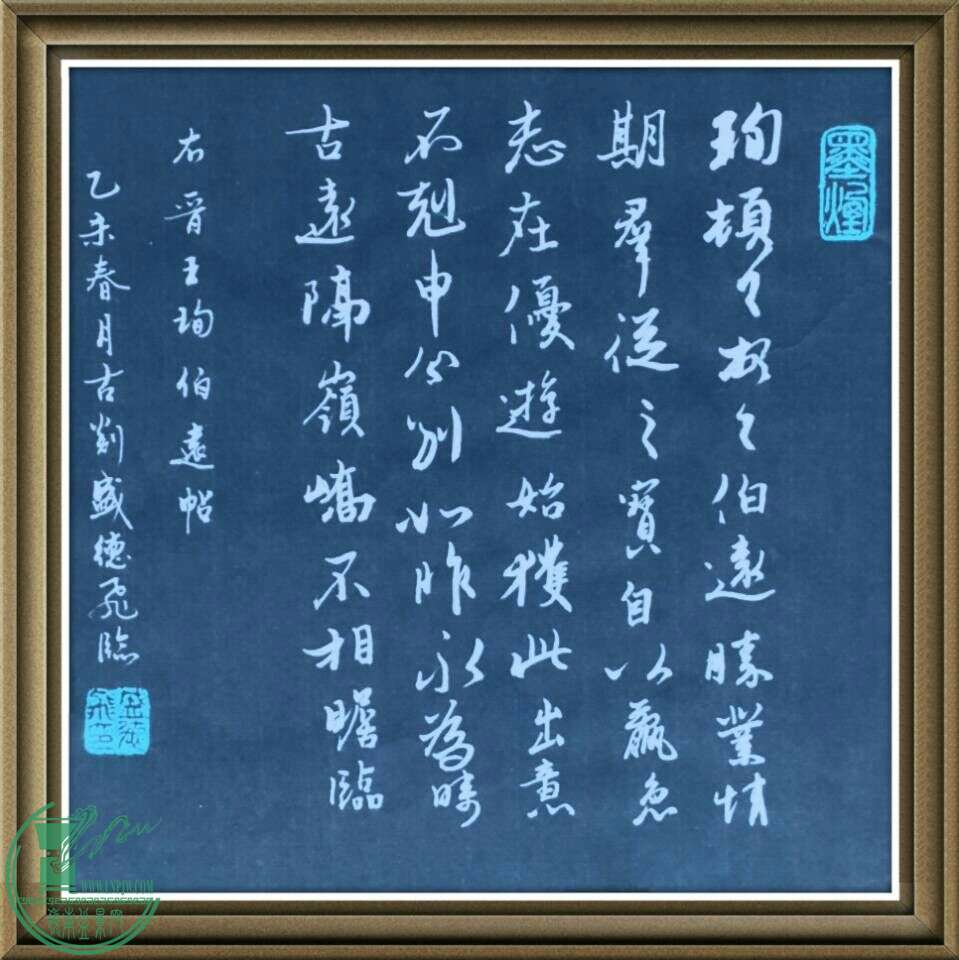 珣頓首頓首伯遠勝業情
期羣從之寶自以羸患
志在優遊始獲此出意
不剋申分別如昨永為疇
古遠隔嶺嶠不相瞻臨
右晉王珣伯遠帖
乙未春月古剡盛德飛臨